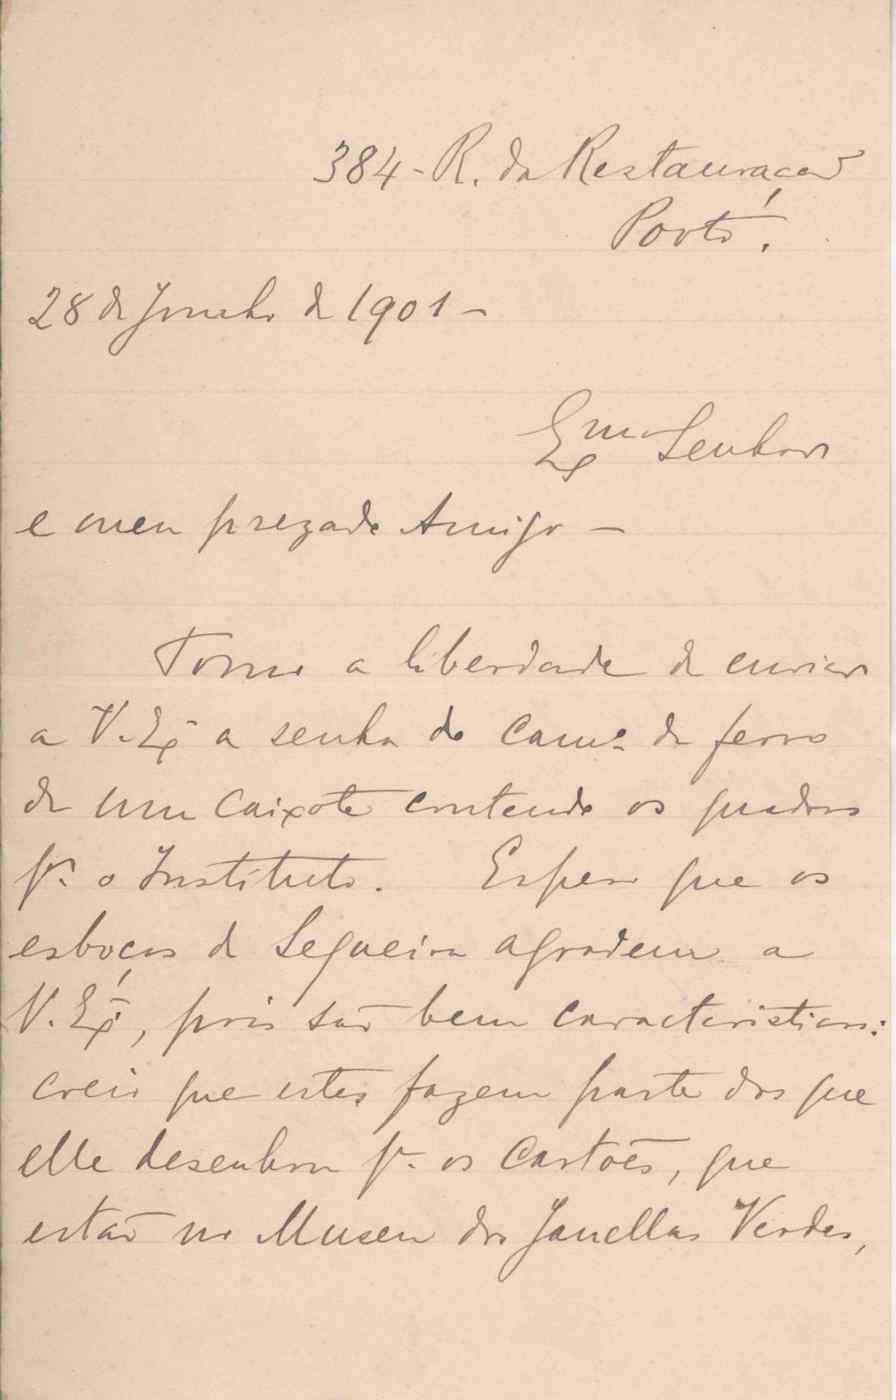 384 - R. da Restauração
Porto.
28 de Junho de 1901 -
Exmo Senhor
e meu prezado Amigo -
Tomo a liberdade de enviar
a V. Exª a senha do camº de ferro
de um caixote contendo os quadros
pª o Instituto. Espero que os
esboços de Sequeira agradem a
V. Exª, pois são bem caracteristicos:
creio que estes fazem parte dos que
elle desenhou pª os Cartões, que
estão no Museu das Janellas Verdes,